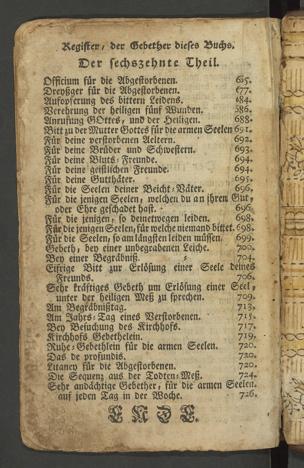 Register, der Gebether dieses Buchs.
Der sechszehnte Theil.
Officium für die Abgestorbenen. 615.
Dreyßger für die Abgestorbenen. 677.
Aufopferung des bittern Leidens. 684.
Verehrung der heiligen fünf Wunden. 686.
Anrufung GOttes, und der Heiligen. 688.
Bitt zu der Mutter Gottes für die armen Seelen 691.
Für deine verstorbenen Aeltern. 692.
Für deine Brüder und Schwestern. 693.
Für deine Bluts-Freunde. 694.
Für deine geistlichen Freunde. 694.
Für deine Gutthäter. 695.
Für die Seelen deiner Beicht-Väter. 696.
Für die jenigen Seelen, welchen du an ihren Gut,
oder Ehre geschadet hast. 696.
Für die jenigen, so deinetwegen leiden. 698.
Für die jenigen Seelen, für welche niemand bittet. 698.
Für die Seelen, so am längsten leiden müssen. 699.
Gebeth, bey einer unbegrabenen Leiche. 700.
Bey einer Begräbniß. 704.
Eifrige Bitt zur Erlösung einer Seele deines
Freunds. 706.
Sehr kräftiges Gebeth um Erlösung einer Seel,
unter der heiligen Meß zu sprechen. 709.
Am Begräbnißtag. 713.
Am Jahrs-Tag eines Verstorbenen. 715.
Bey Besuchung des Kirchhofs. 717.
Kirchhofs Gebethelein. 719.
Ruhe-Gebethlein für die armen Seelen. 720.
Das de profundis. 720.
Litaney für die Abgestorbenen. 720.
Die Sequenz aus der Todten-Meß. 724.
Sehr andächtige Gebether, für die armen Seelen,
auf jeden Tag in der Woche. 726.
ENDE.